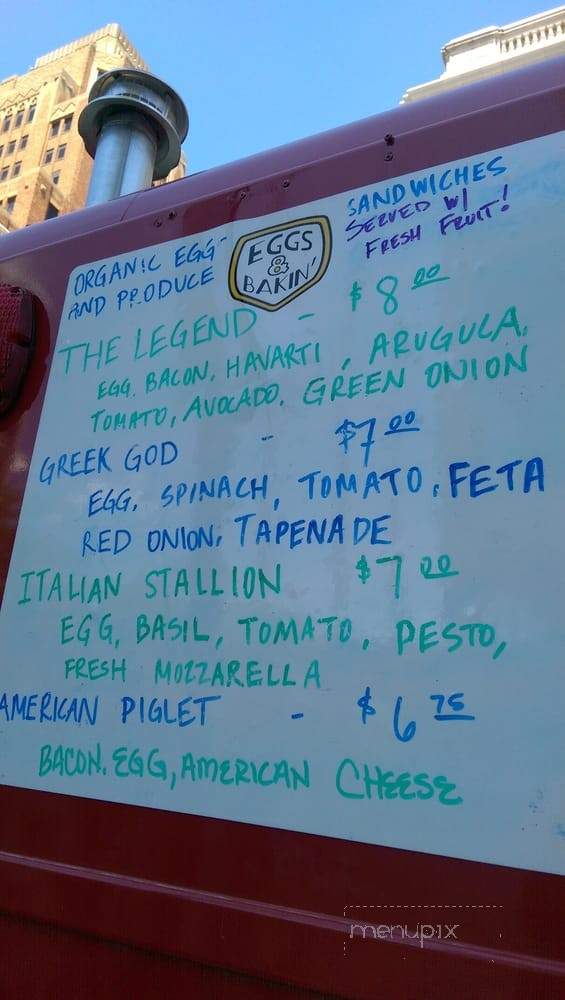 ORGANIC EGG
AND PRODUCE
EGGS
&
BAKIN'
SANDWICHES
SERVED W/
FRESH FRUIT!
THE LEGEND - $8.00
EGG, BACON, HAVARTI, ARUGULA,
TOMATO, AVOCADO, GREEN ONION
GREEK GOD - $7.00
EGG, SPINACH, TOMATO, FETA
RED ONION, TAPENADE
ITALIAN STALLION $7.00
EGG, BASIL, TOMATO, PESTO,
FRESH MOZZARELLA
AMERICAN PIGLET - $6.75
BACON, EGG, AMERICAN CHEESE
menupix